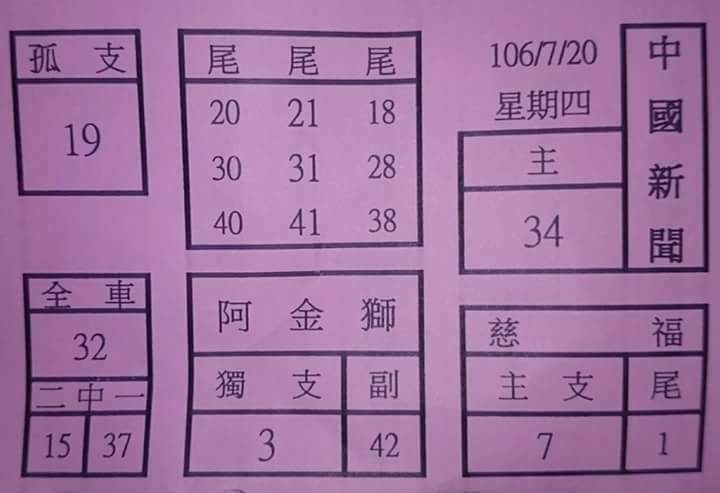 孤 支
19
尾 尾 尾
20 21 18
30 31 28
40 41 38
106/7/20
星期四
主
34
中國新聞
全 車
32
二 中 一
15 37
阿 金 獅
獨 支 副
3 42
慈 福
主 支 尾
7 1